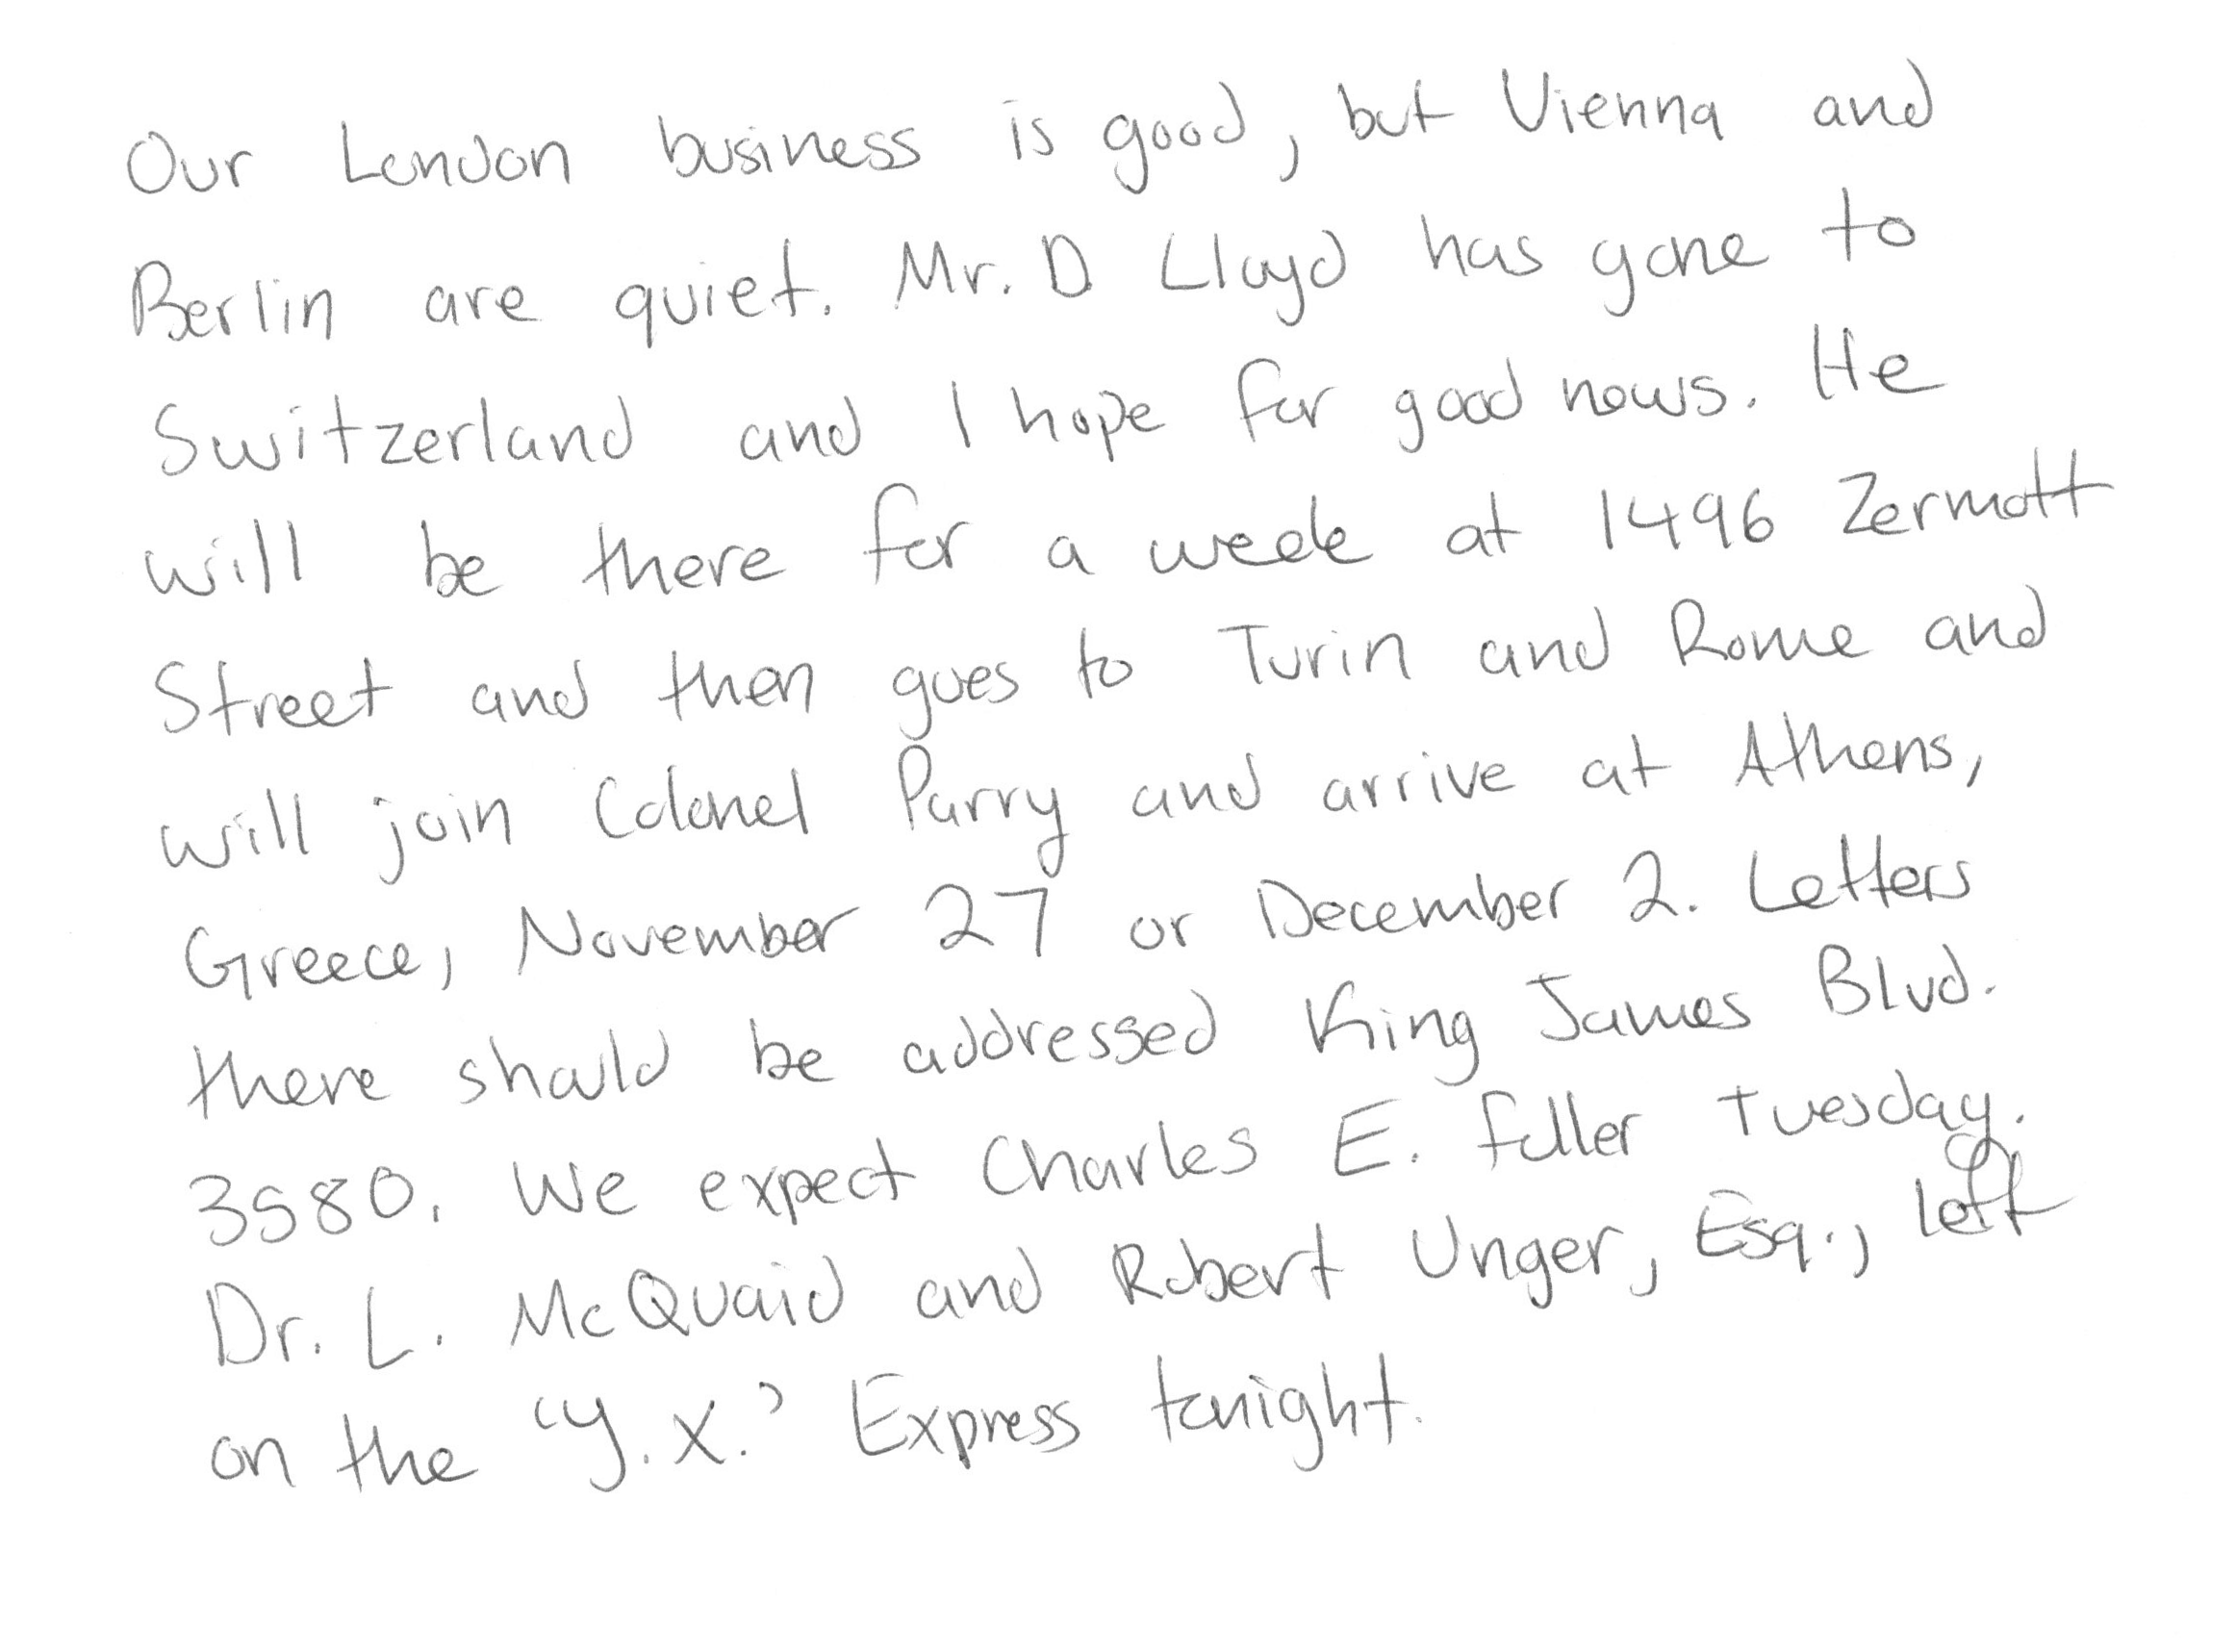 Our London business is good, but Vienna and
Berlin are quiet. Mr. D. Lloyd has gone to
Switzerland and I hope for good news. He
will be there for a week at 1496 Zermott
Street and then goes to Turin and Rome and
will join Colonel Parry and arrive at Athens,
Greece, November 27 or December 2. Letters
there should be addressed King James Blvd.
3580. We expect Charles E. Fuller Tuesday.
Dr. L. McQuaid and Robert Unger, Esq., left
on the "Y.X." Express tonight.